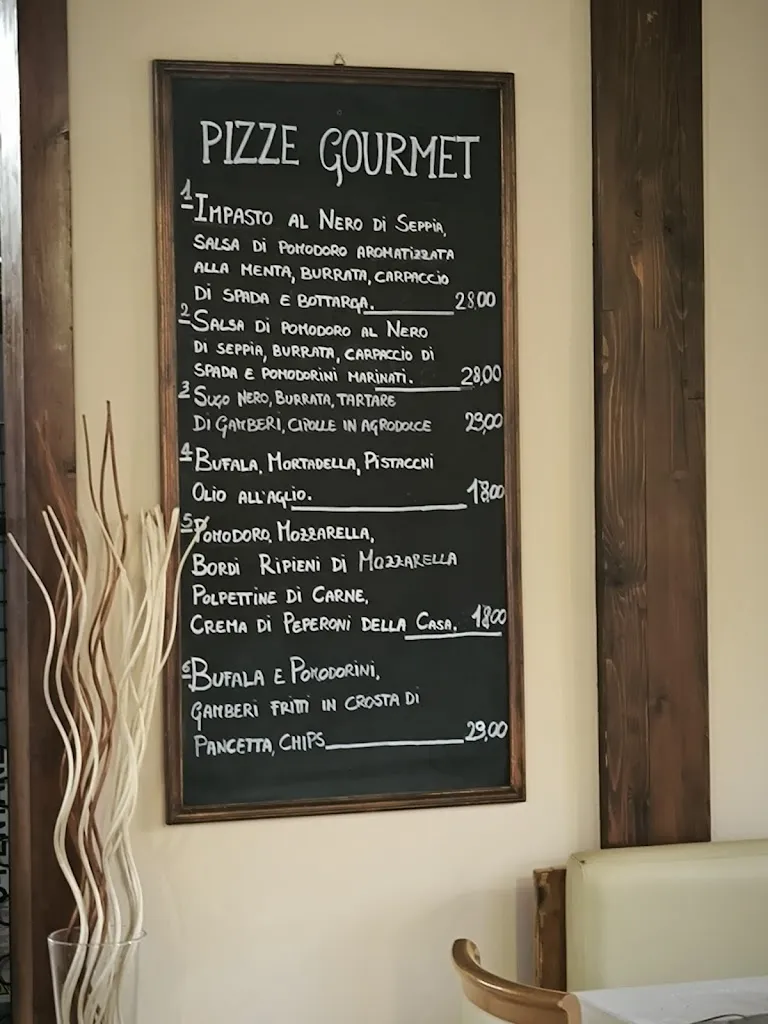 PIZZE GOURMET
1 IMPASTO AL NERO DI SEPPIA,
SALSA DI POMODORO AROMATIZZATA
ALLA MENTA, BURRATA, CARPACCIO
DI SPADA E BOTTARGA. 28,00
2 SALSA DI POMODORO AL NERO
DI SEPPIA, BURRATA, CARPACCIO DI
SPADA E POMODORINI MARINATI. 28,00
3 SUGO NERO, BURRATA, TARTARE
DI GAMBERI, CIPOLLE IN AGRODOLCE 29,00
4 BUFALA, MORTADELLA, PISTACCHI
OLIO ALL'AGLIO. 18,00
5 POMODORO, MOZZARELLA,
BORDI RIPIENI DI MOZZARELLA
POLPETTINE DI CARNE,
CREMA DI PEPERONI DELLA CASA. 18,00
6 BUFALA E POMODORINI,
GAMBERI FRITTI IN CROSTA DI
PANCETTA, CHIPS 29,00